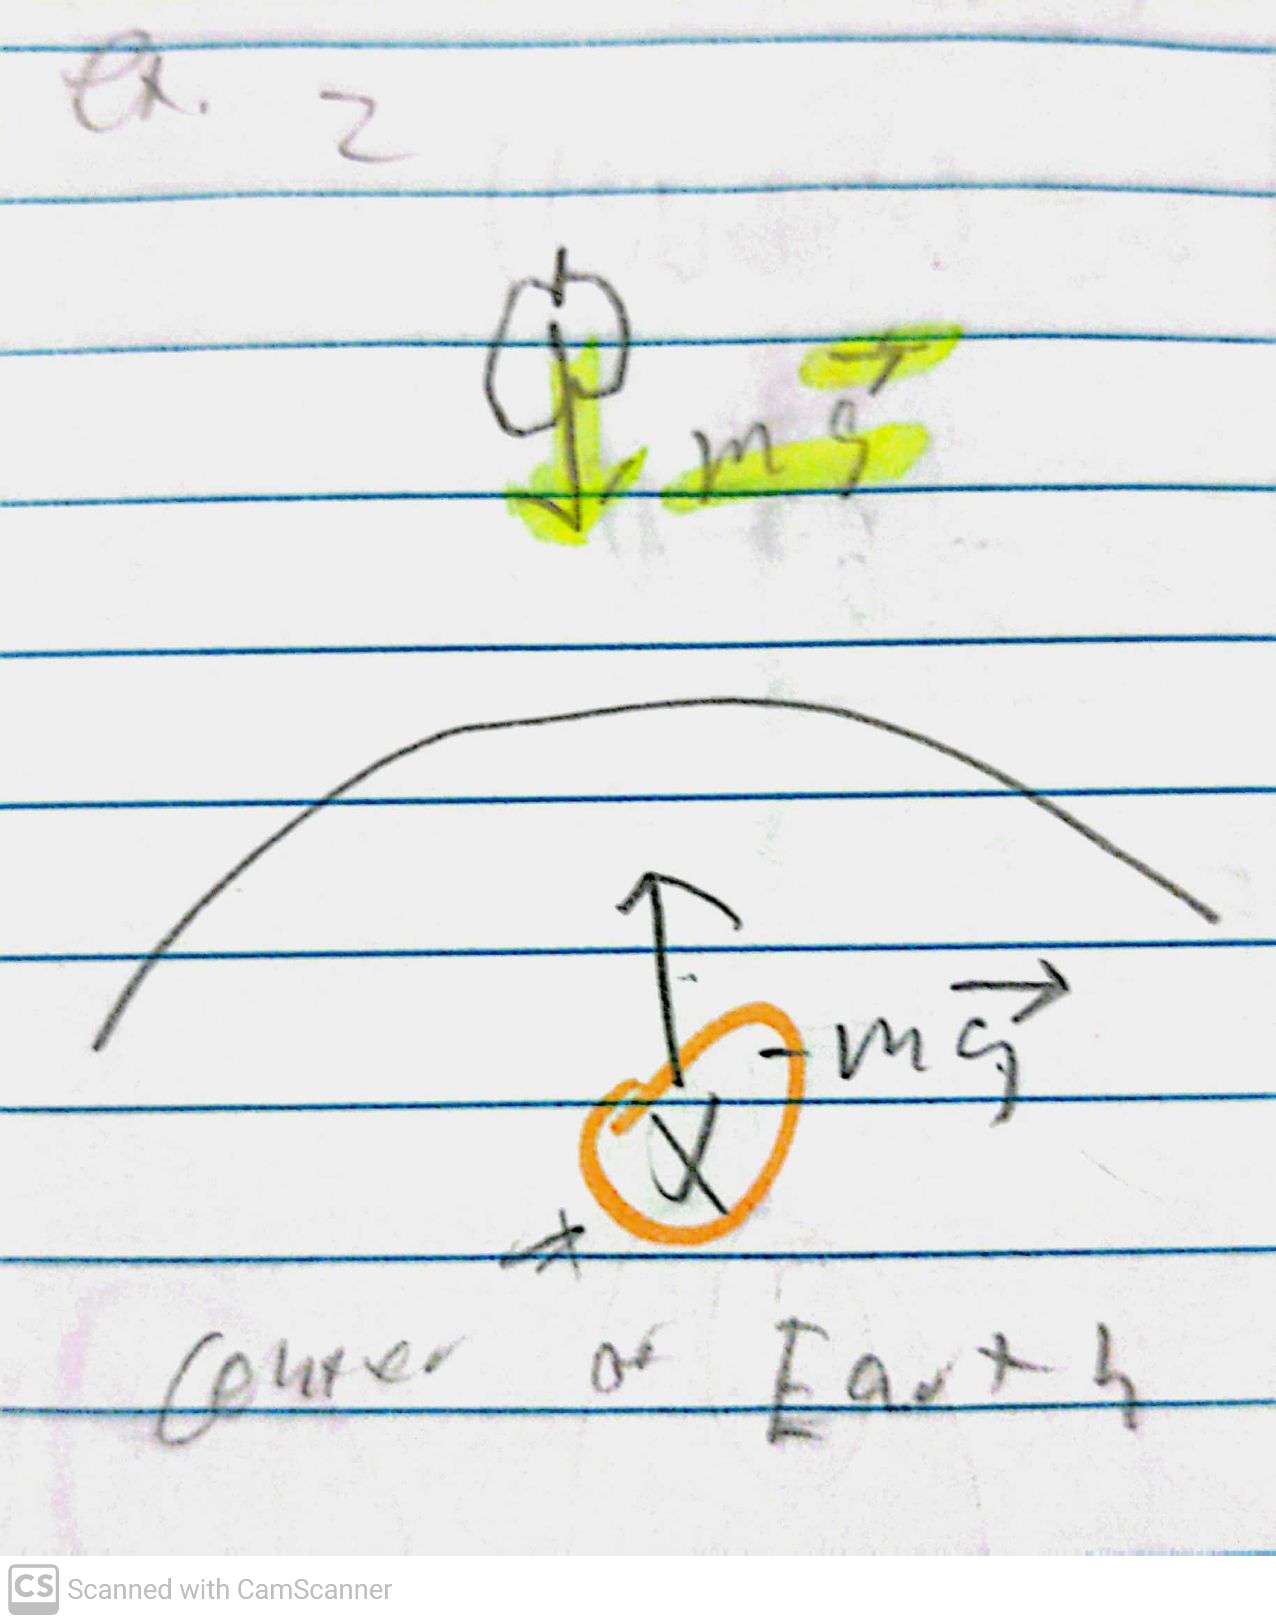 Ex. 2
m g⃗
- m g⃗
Center of Earth
CS Scanned with CamScanner